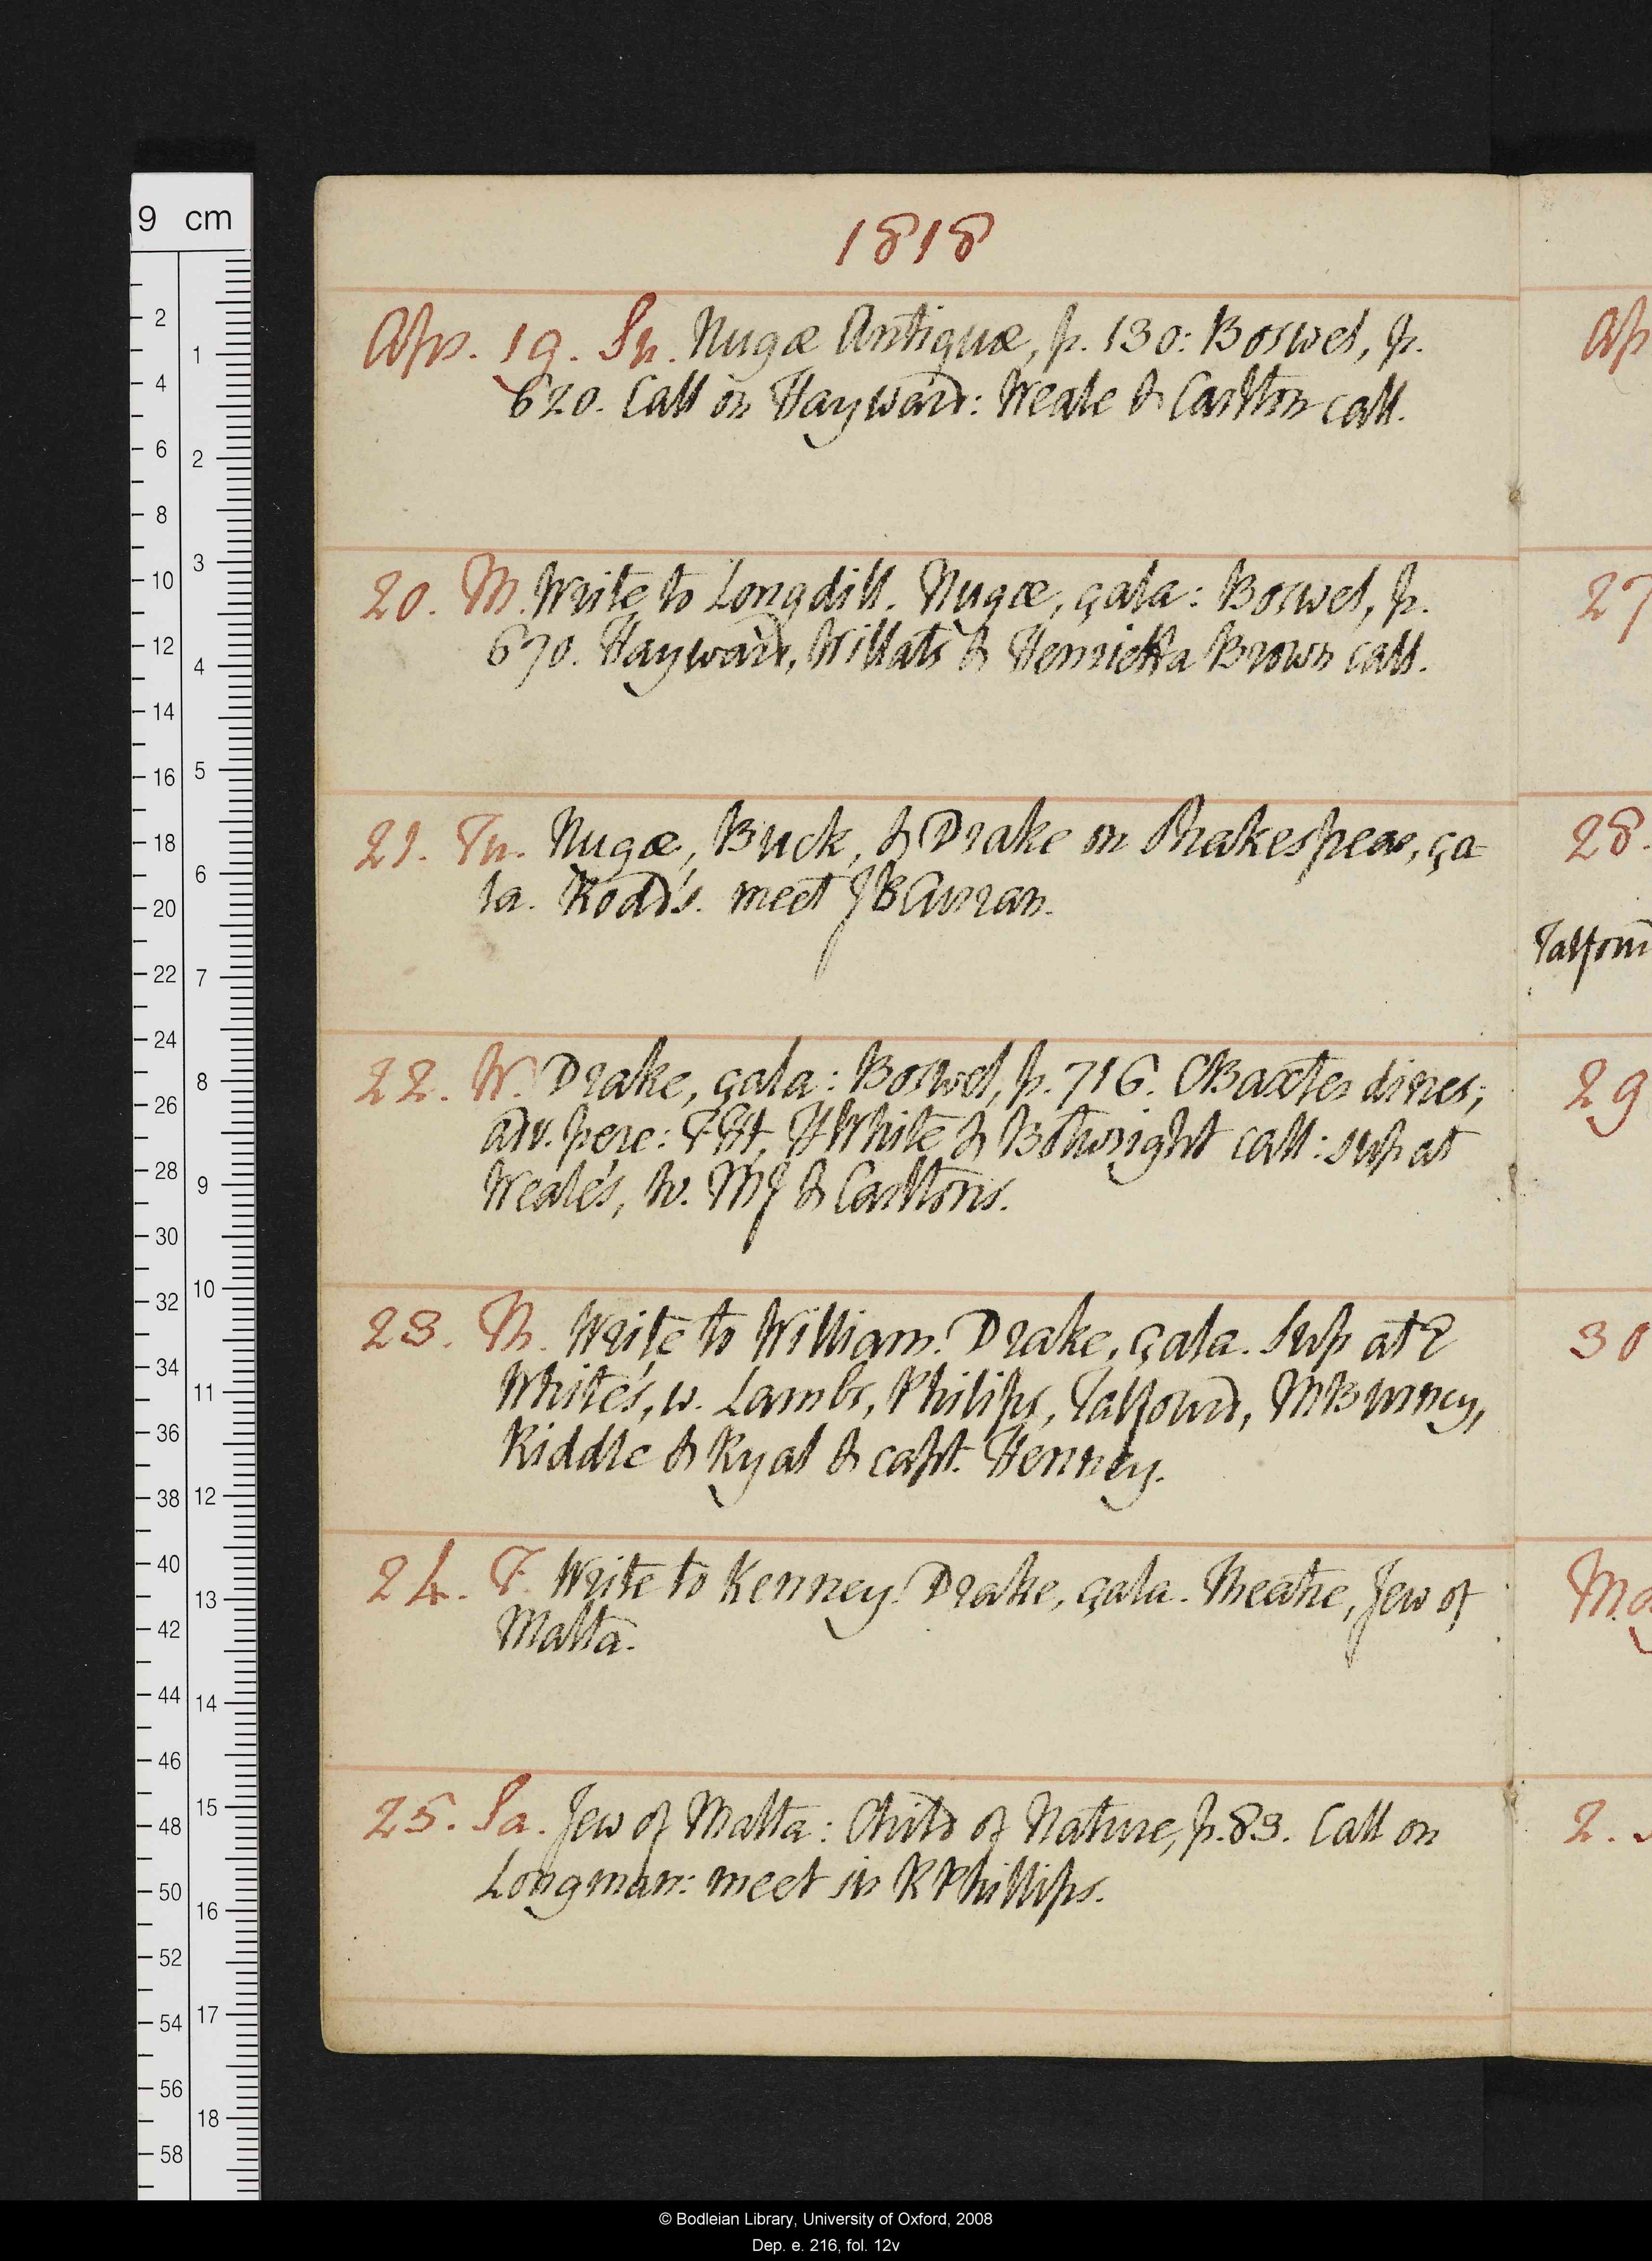 1818
Apr. 19. Su. Nugæ Antiquæ, p. 130: Boswel, p.
620. Call on Hayward: Neale & Carlton call.
20. M. Write to Longdill. Nugæ, çala: Boswel, p.
670. Hayward, Willats & Henrietta Brown call.
21. Tu. Nugæ, Buck, & Drake on Shakespear, ça-
la. Rodd's. meet JBCurran.
22. W. Drake, çala: Boswel, p. 716. CBaxter dines;
adv. pere: HWhite & Bothwright call: sup at
Neale's, w. MJ & Carltons.
23. Th. Write to William. Drake, çala. Sup at E
White's, w. Lambs, Philips, Talfourd, MBurney,
Riddle & Ryal & capt. Henney.
24. F. Write to Kenney. Drake, çala. Theatre, Jew of
Malta.
25. Sa. Jew of Malta: Child of Nature, p. 83. Call on
Longman: meet sir RPhillips.
Ap
27
28.
Talfour
29
30
Ma
2.
9 cm
2
4
6
8
10
12
14
16
18
20
22
24
26
28
30
32
34
36
38
40
42
44
46
48
50
52
54
56
58
1
2
3
4
5
6
7
8
9
10
11
12
13
14
15
16
17
18
© Bodleian Library, University of Oxford, 2008
Dep. e. 216, fol. 12v